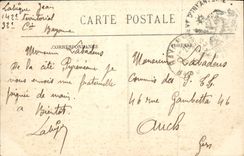 Labigue Jean
142e territorial
32e Cie
Bayonne
CARTE POSTALE
CORRESPONDANCE
Monsieur Labadens
De la cité Pyrénéenne je
vous envoie une fraternelle
poignée de main.
A Bientôt
Labigue
Monsieur Labadens
Commis des P.T.T.
46 rue Gambetta 46
Auch
Gers